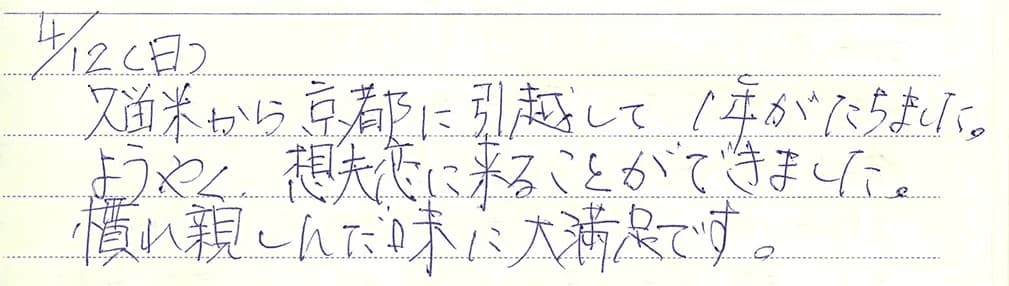 4/12(日)
久留米から京都に引越して 1年がたちました。
ようやく、想夫恋に来ることができました。
慣れ親しんだ味に大満足です。